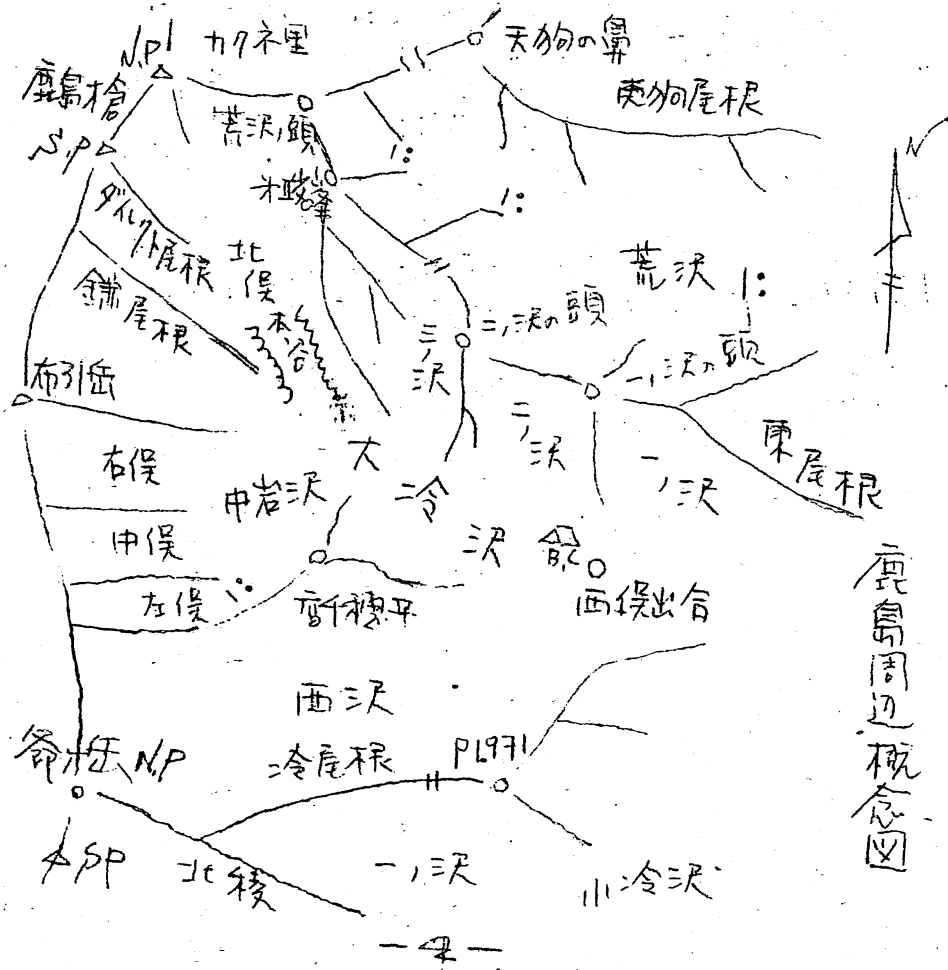 N.P
カクネ里
天狗の鼻
鹿島槍
荒沢ノ頭
天狗尾根
S.P
N
ダイレクト尾根
北俣
荒沢
鎌尾根
本谷
三ノ沢
二ノ沢の頭
一ノ沢の頭
布引岳
二ノ沢
一ノ沢
東尾根
右俣
中岩沢
大冷沢
中俣
B.C
左俣
高千穂平
西俣出合
鹿島周辺概念図
西沢
爺ヶ岳N.P
冷尾根
P1,971
S.P
北稜
一ノ沢
小冷沢
－4－